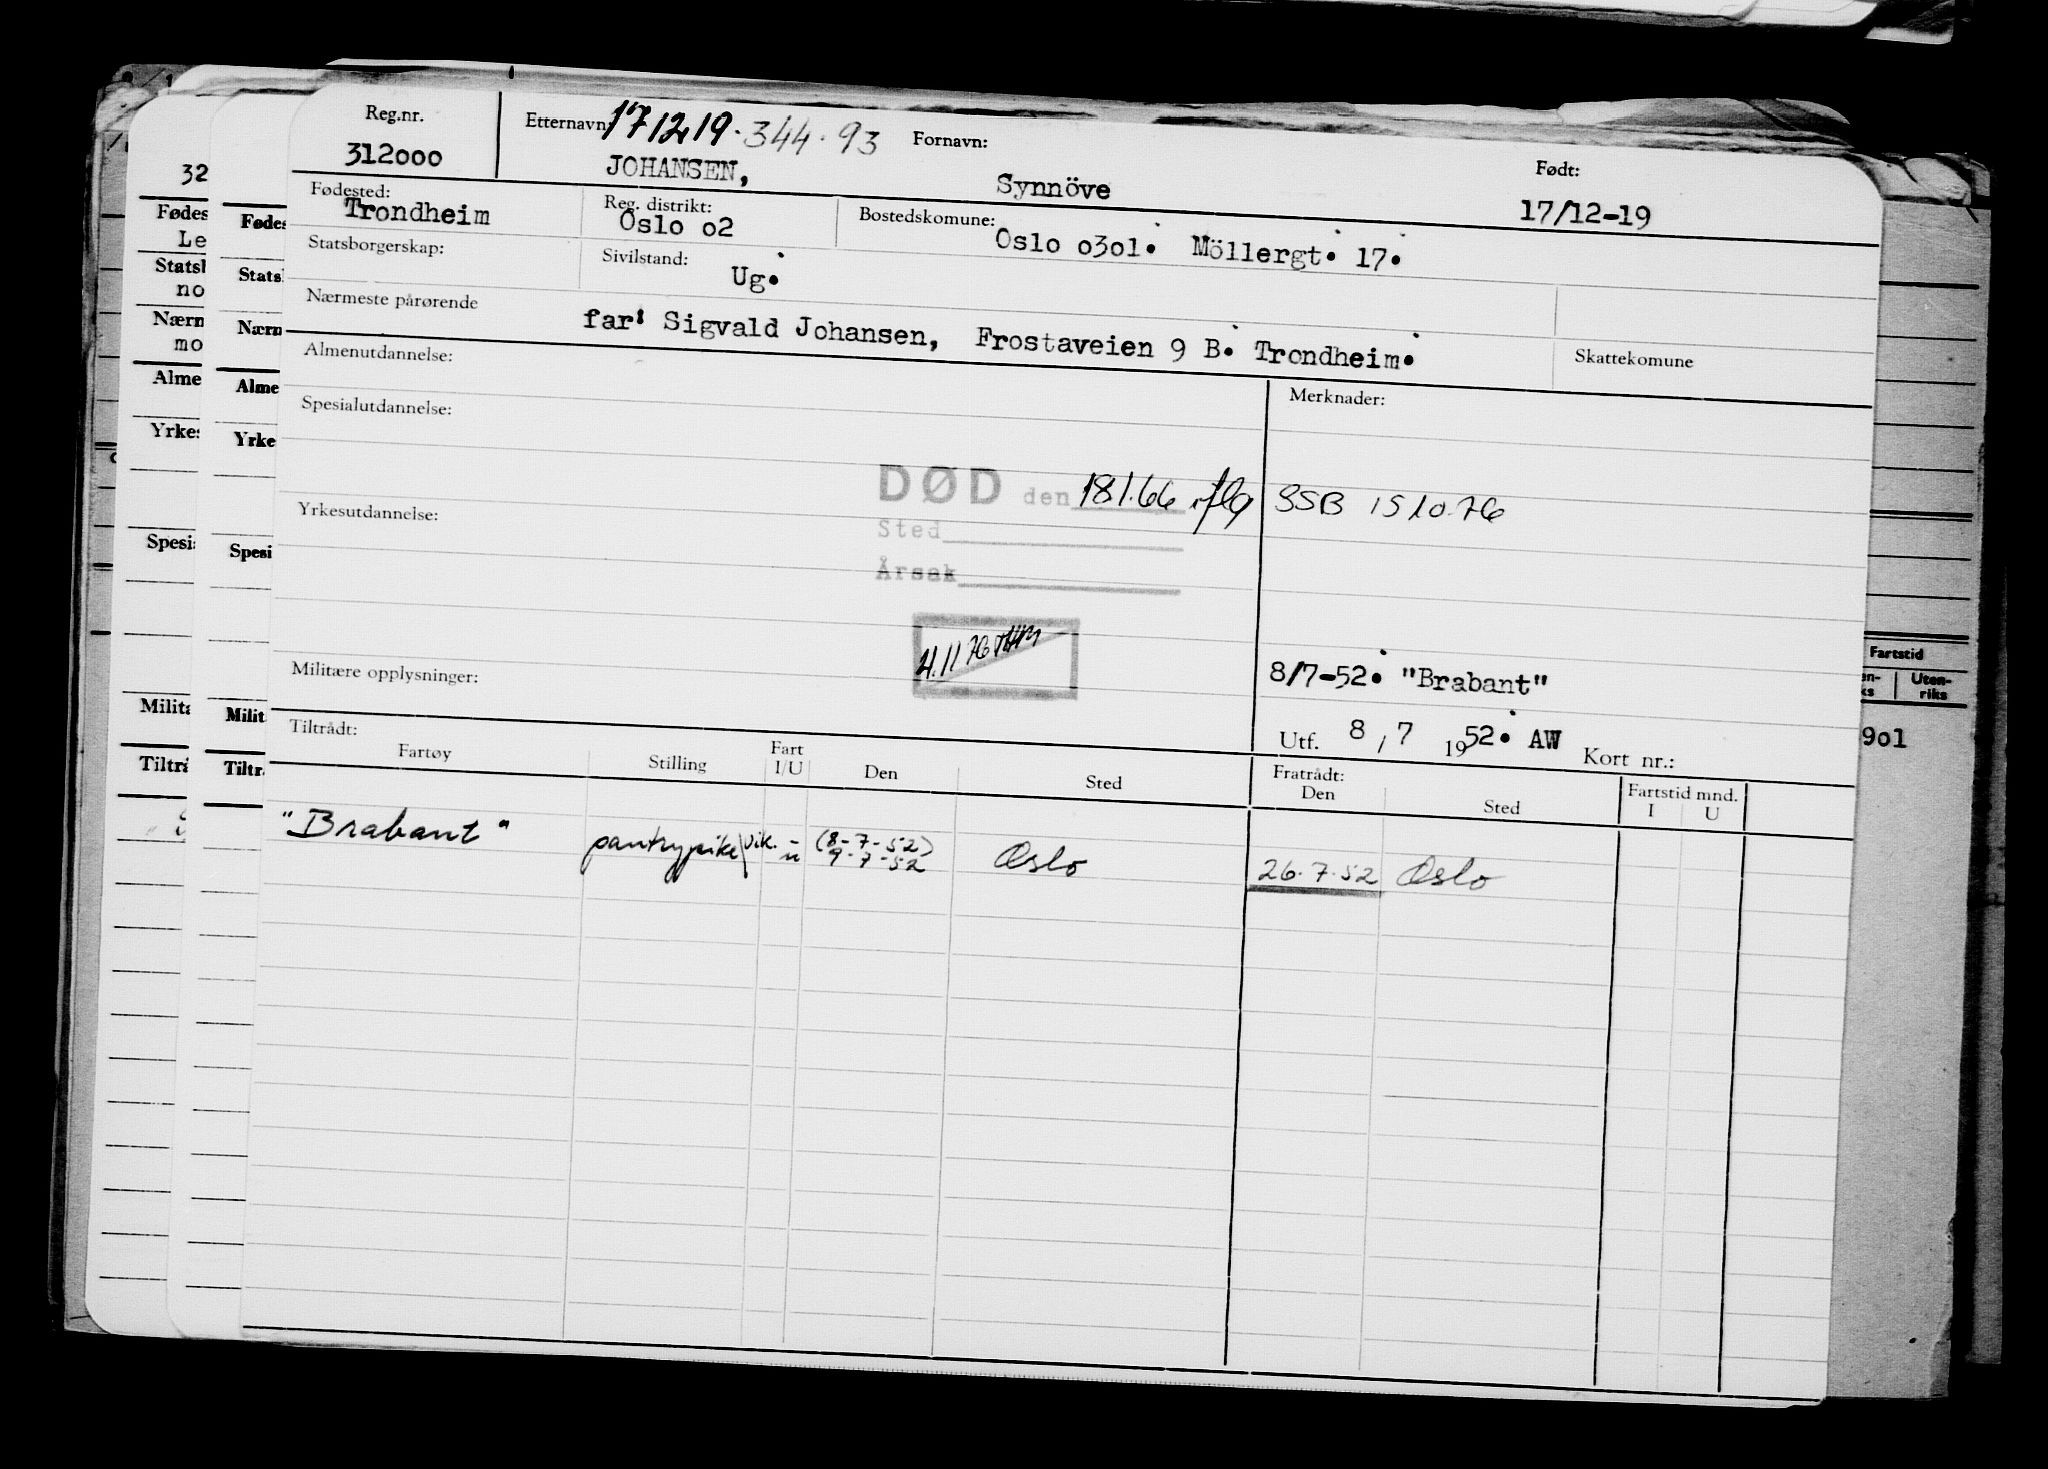 Reg.nr.
312000
Etternavn: 171219.344.93
JOHANSEN,
Fornavn:
Synnöve
Født:
17/12-19
Fødested:
Trondheim
Reg. distrikt:
Oslo o2
Bostedskomune:
Oslo o3o1. Möllergt. 17.
Statsborgerskap:
Sivilstand:
Ug.
Nærmeste pårørende
far: Sigvald Johansen, Frostaveien 9 B. Trondheim.
Skattekomune
Almenutdannelse:
Spesialutdannelse:
Yrkesutdannelse:
Militære opplysninger:
DØD den 181.66
Sted
Årsak
4.11 76
Merknader:
SSB 15 10.76
8/7-52. "Brabant"
Utf. 8 / 7 1952. AW Kort nr.:
Tiltrådt:
Fartøy Stilling Fart I/U Den Sted
Fratrådt:
Den Sted Fartstid mnd. I U
"Brabant" pantrypike vik. - u (8-7-52) 9-7-52 Oslo 26.7.52 Oslo
32
Fødes
Le
Statsb
no
Nærm
mo
Alme
Yrkes
Spesi
Milita
Tiltrå
Fødes
Stats
Nærm
Alme
Yrke
Spesi
Milit
Tiltr
Fartstid
en-
ks
Uten-
riks
9o1